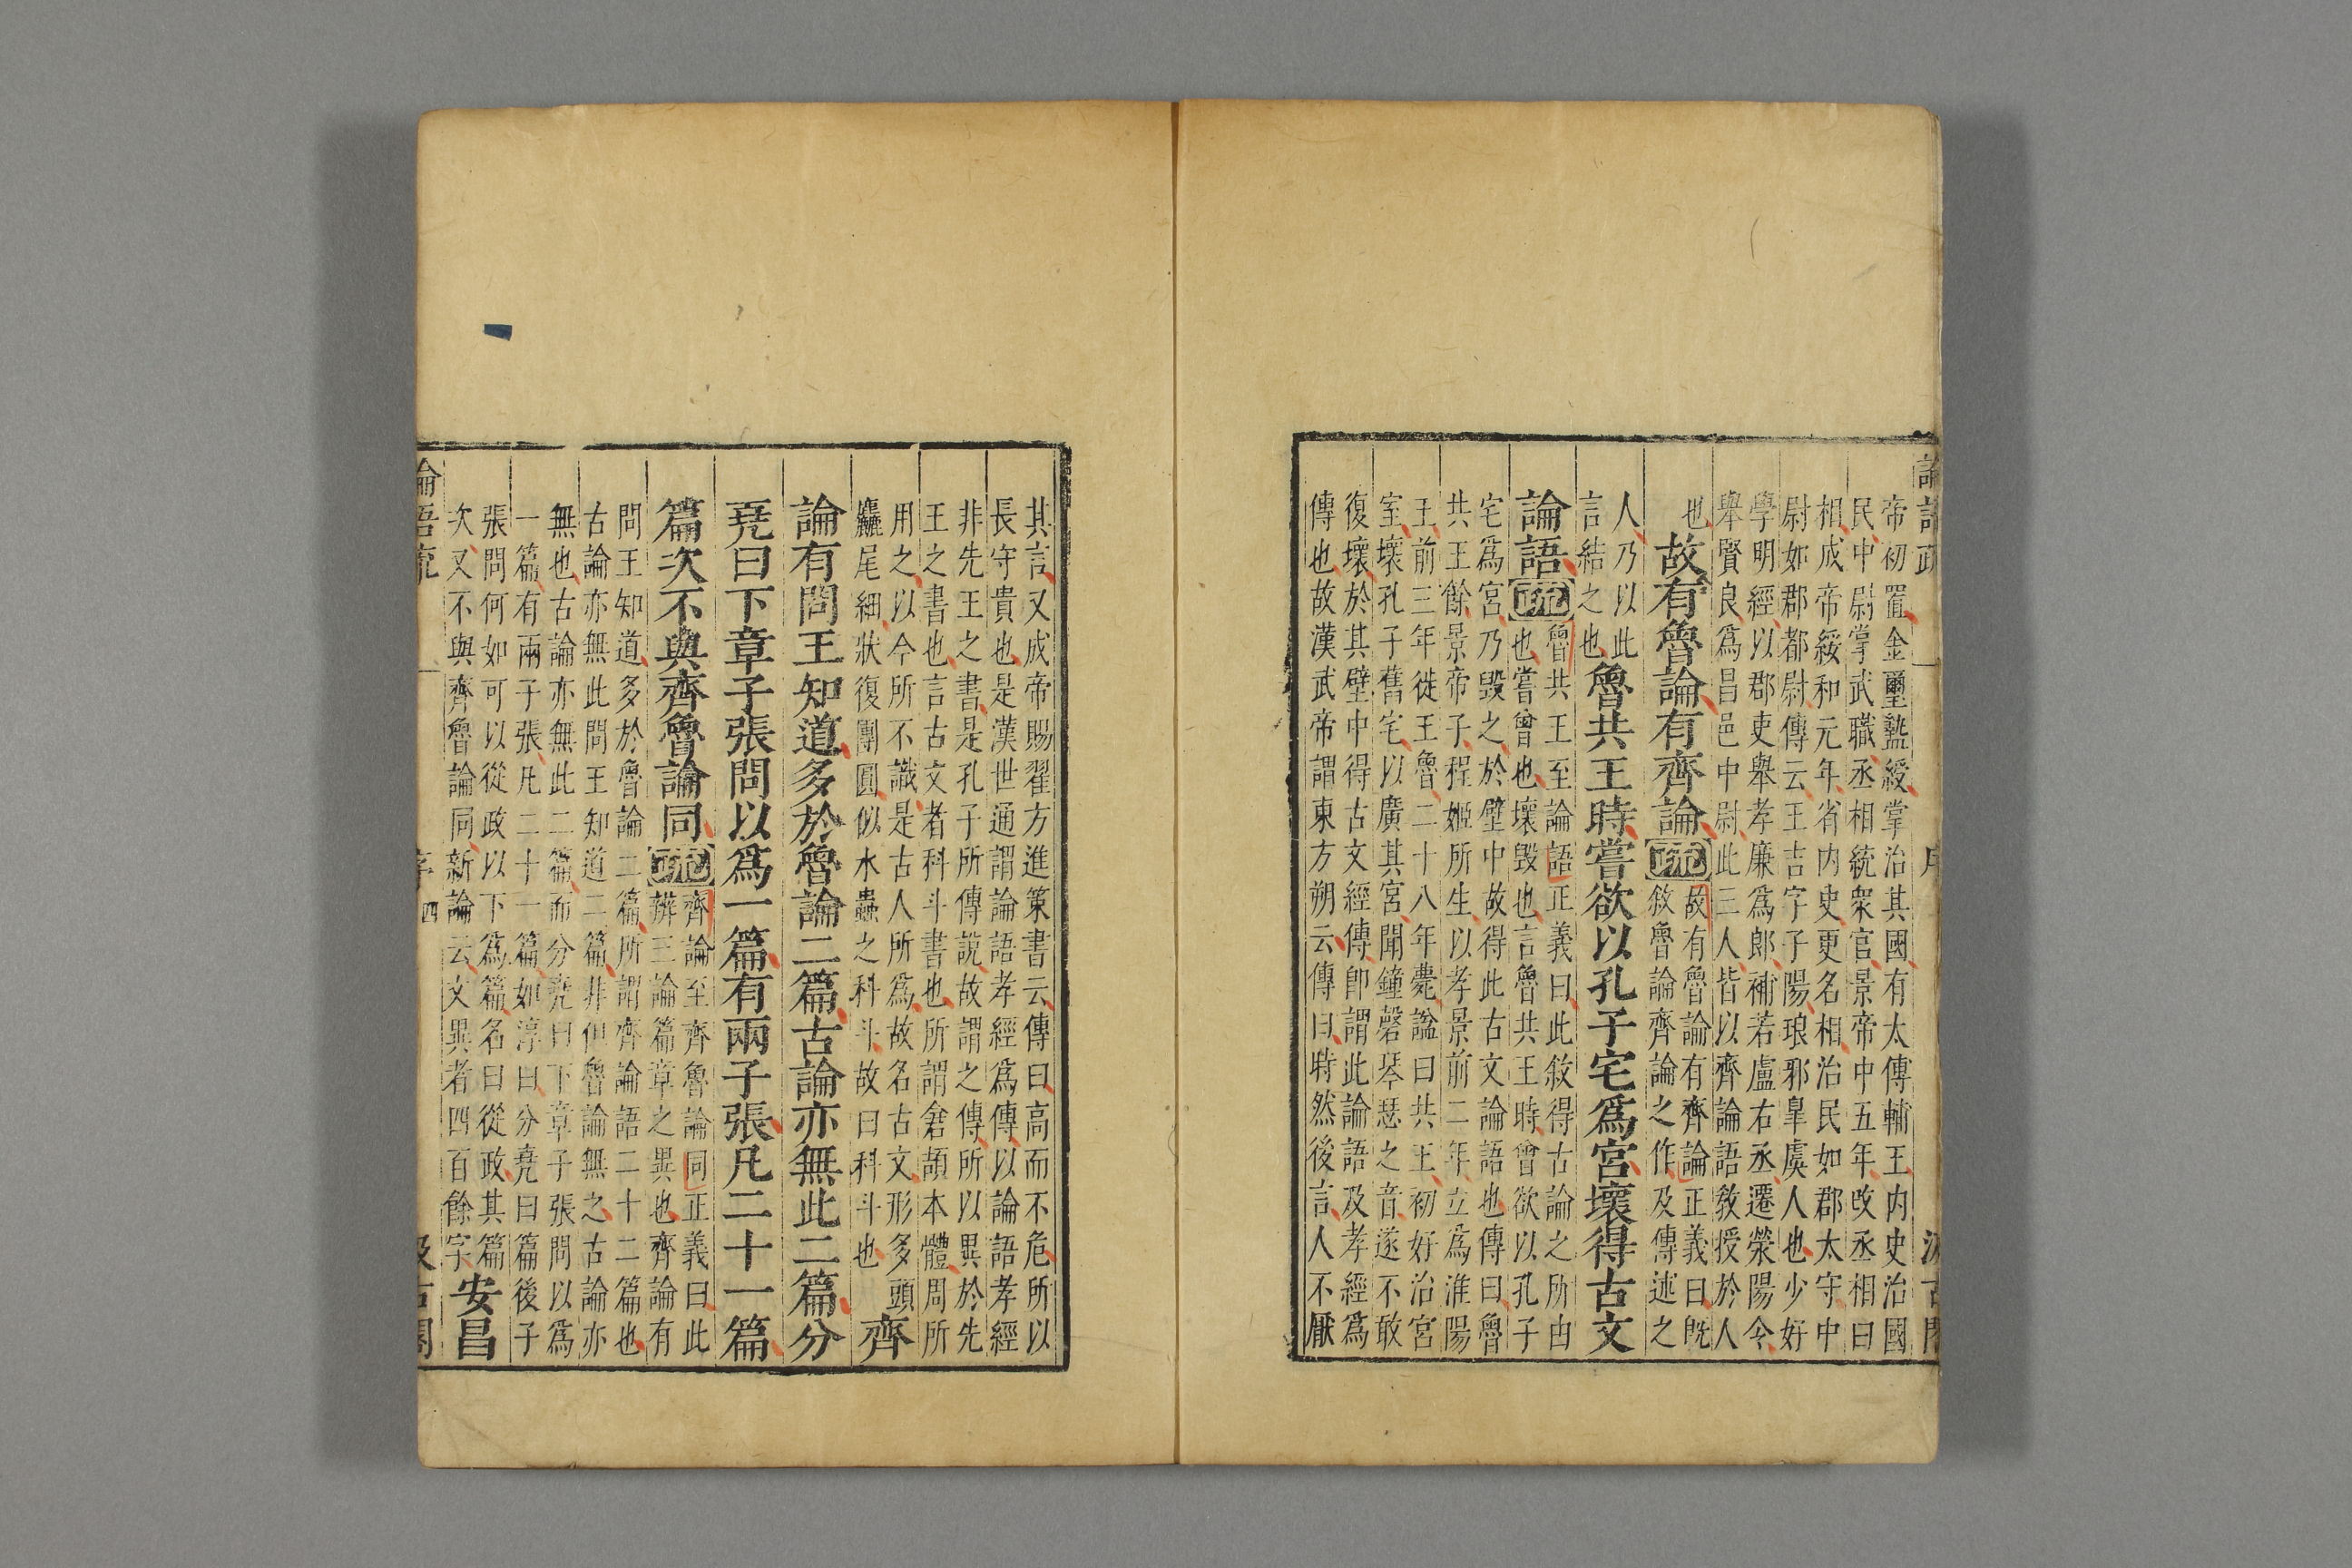 論語疏 序 汲古閣
帝初置金璽盭綬掌治其國有太傅輔王内史治國
民中尉掌武職丞相統衆官景帝中五年改丞相曰
相成帝綏和元年省内史更名相治民如郡太守中
尉如郡都尉傳云王吉字子陽琅邪皐虞人也少好
學明經以郡吏舉孝廉爲郎補若盧右丞遷滎陽令
舉賢良爲昌邑中尉此三人皆以齊論語敎授於人
也故有魯論有齊論疏故有魯論有齊論正義曰旣
敘魯論齊論之作及傳述之
人乃以此
言結之也魯共王時嘗欲以孔子宅爲宮壞得古文
論語疏魯共王至論語正義曰此敘得古論之所由
也嘗曾也壞毀也言魯共王時曾欲以孔子
宅爲宮乃毀之於壁中故得此古文論語也傳曰魯
共王餘景帝子程姬所生以孝景前二年立爲淮陽
王前三年徙王魯二十八年薨諡曰共王初好治宮
室壞孔子舊宅以廣其宮聞鐘磬琴瑟之音遂不敢
復壞於其壁中得古文經傳卽謂此論語及孝經爲
傳也故漢武帝謂東方朔云傳曰時然後言人不厭
其言又成帝賜翟方進策書云傳曰高而不危所以
長守貴也是漢世通謂論語孝經爲傳以論語孝經
非先王之書是孔子所傳說故謂之傳所以異於先
王之書也言古文者科斗書也所謂倉頡本體周所
用之以今所不識是古人所爲故名古文形多頭
麤尾細狀復團圓似水蟲之科斗故曰科斗也齊
論有問王知道多於魯論二篇古論亦無此二篇分
堯曰下章子張問以爲一篇有兩子張凡二十一篇
篇次不與齊魯論同疏齊論至齊魯論同正義曰此
辨三論篇章之異也齊論有
問王知道多於魯論二篇所謂齊論語二十二篇也
古論亦無此問王知道二篇非但魯論無之古論亦
無也古論亦無此二篇而分堯曰下章子張問以爲
一篇有兩子張凡二十一篇如淳曰分堯曰篇後子
張問何如可以從政以下爲篇名曰從政其篇
次又不與齊魯論同新論云文異者四百餘字安昌
論語疏 序 四 汲古閣